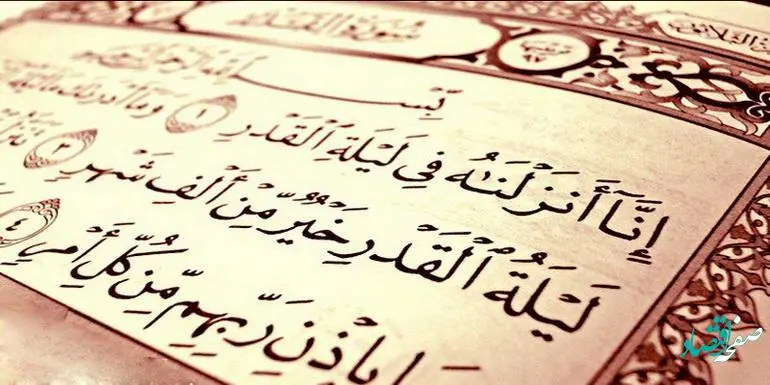 سُورَةُ القَدْرِ
بِسْمِ اللَّهِ الرَّحْمَٰنِ
إِنَّآ أَنزَلْنَـٰهُ فِى لَيْلَةِ ٱلْقَدْرِ ١ وَمَآ أَدْرَىٰكَ مَا لَيْلَةُ
لَيْلَةُ ٱلْقَدْرِ خَيْرٌ مِّنْ أَلْفِ شَهْرٍ ٣
بِإِذْنِ رَبِّهِم مِّن كُلِّ أَمْرٍ ٤
صفحه اقتصاد